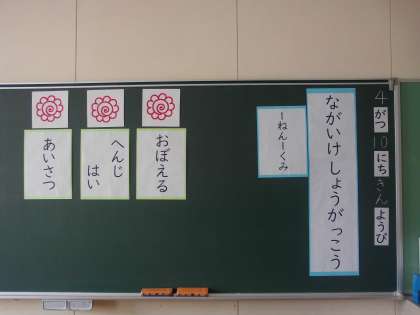 4がつ10にちきんようび
ながいけしょうがっこう
一ねん一くみ
おぼえる
へんじ
はい
あいさつ